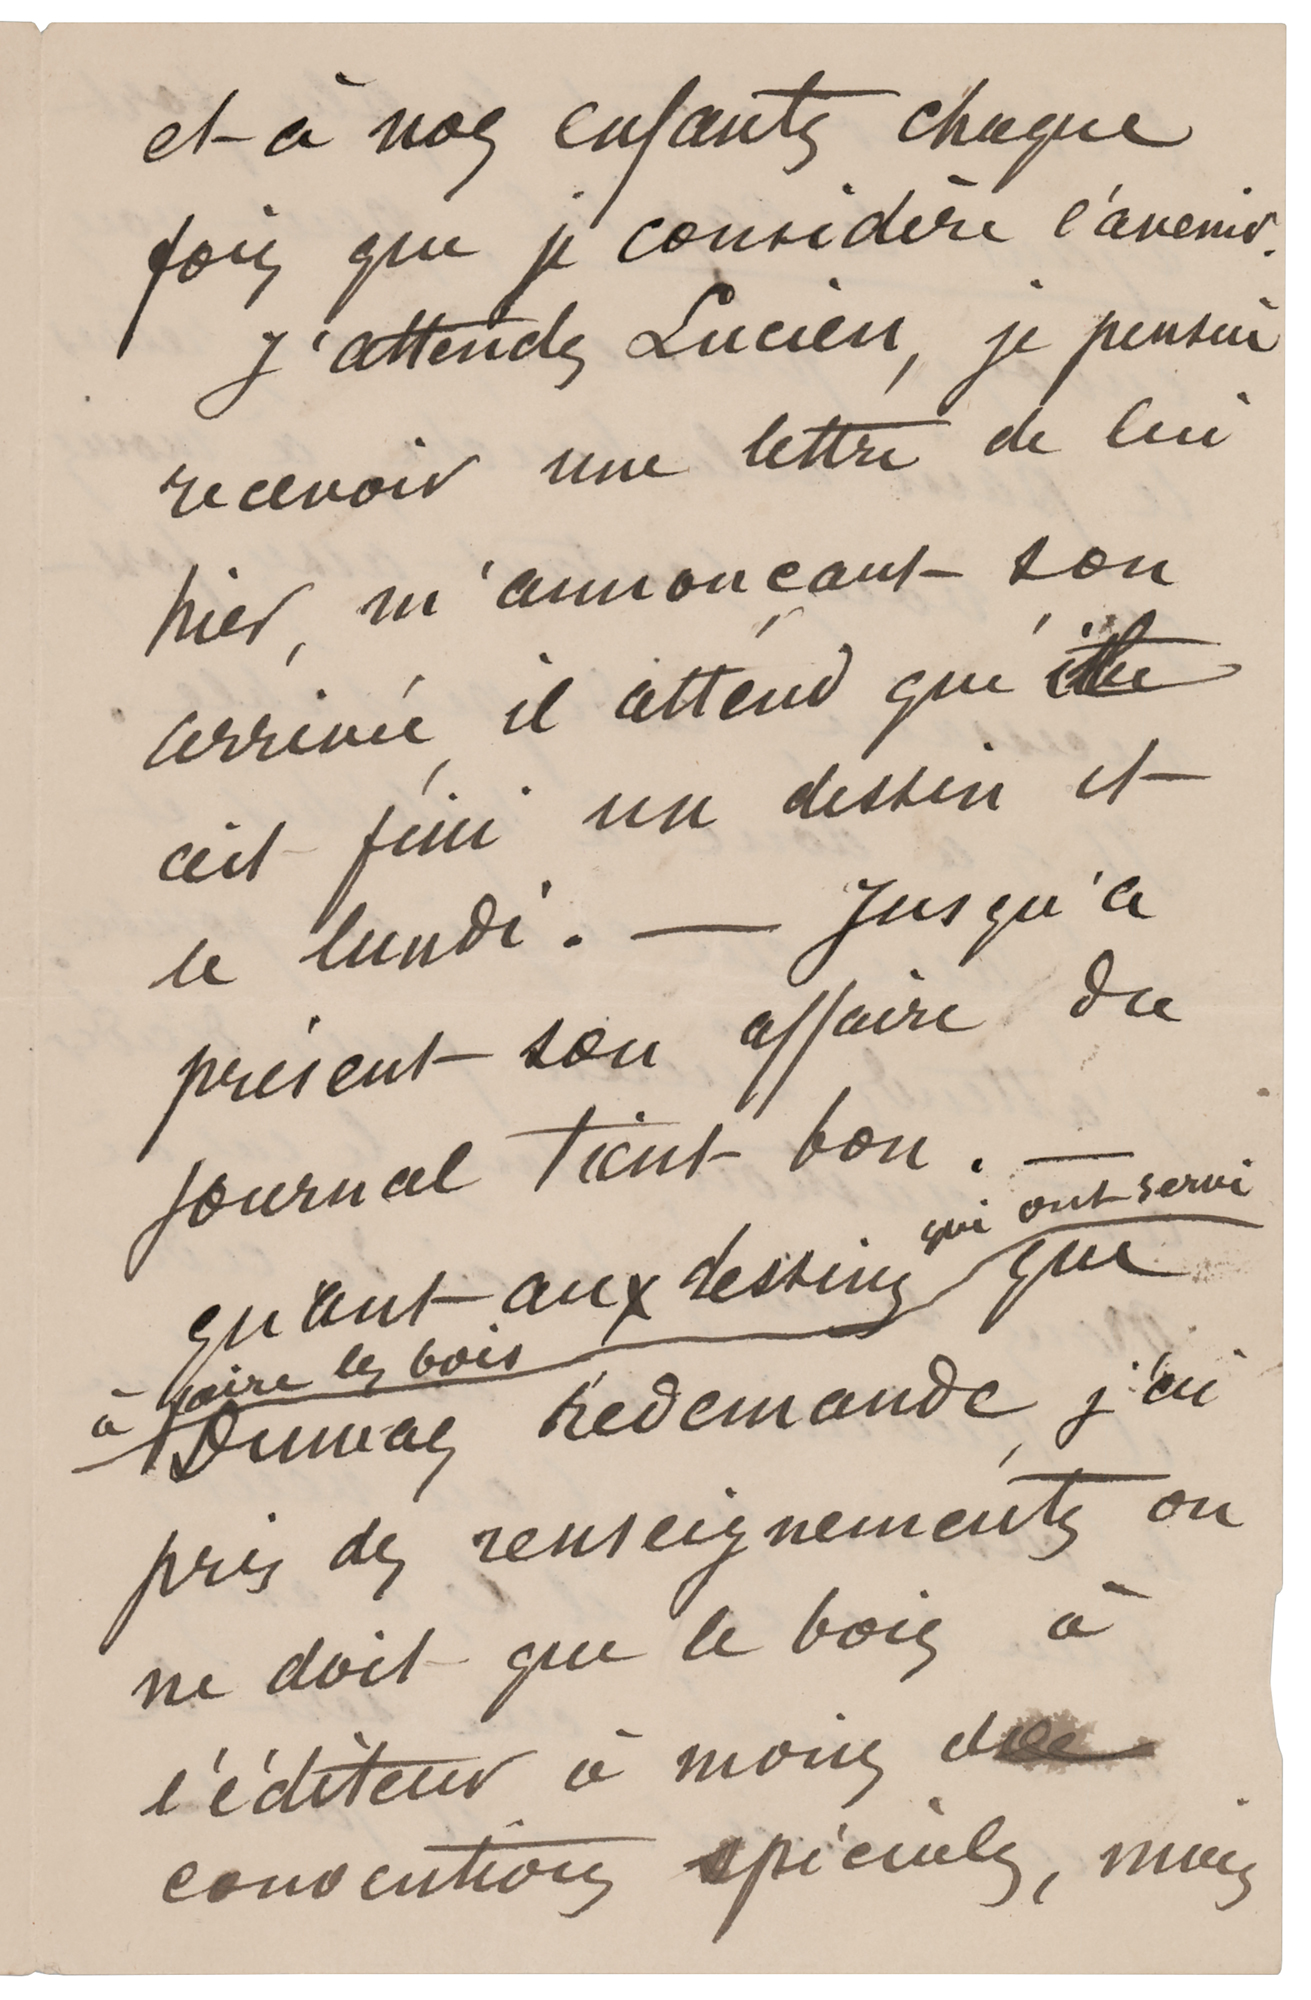 et à nos enfants chaque
fois que je considère l'avenir.
J'attends Lucien, je pensais
recevoir une lettre de lui
hier, m'annonçant son
arrivée, il attend que
ait fini un dessin et
le lundi. — Jusqu'à
présent son affaire du
journal tient bon. —
qui ont servi
quant aux dessins que
à faire les bois
Dumas redemande, j'ai
pris des renseignements on
ne doit que le bois à
l'éditeur à moins de
conventions spéciales, mais